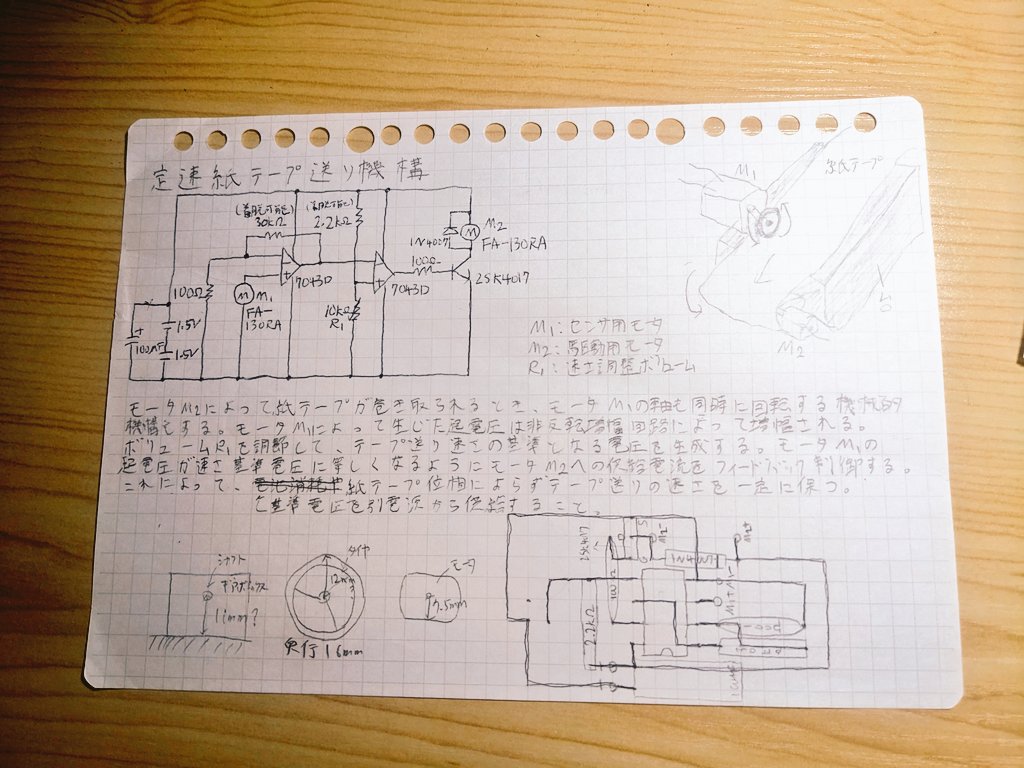 定速紙テープ送り機構
(着脱可能)
30kΩ
(着脱可能)
2.2kΩ
1N4007
M
M2
FA-130RA
7043D
7043D
100Ω
2SK4017
100Ω
M
M1
FA-
130RA
10kΩ
R1
100μF
1.5V
1.5V
M1
紙テープ
M2
M1:センサ用モータ
M2:駆動用モータ
R1:速さ調整ボリューム
モータM2によって紙テープが巻き取られるとき、モータM1の軸も同時に回転する機械的
機構とする。モータM1によって生じた起電圧は非反転増幅回路によって増幅される。
ボリュームR1を調節して、テープ送り速さの基準となる電圧を生成する。モータM1の
起電圧が速さ基準電圧に等しくなるようにモータM2への供給電流をフィードバック制御する。
これによって、紙テープ位相によらずテープ送りの速さを一定に保つ。
基準電圧を別電源から供給すること。
シャフト
ギアボックス
11mm?
タイヤ
12mm
奥行16mm
モータ
7.5mm
2SK4017
M2-
M2+
1N4007
100Ω
2.2kΩ
M1+
M1-
100Ω